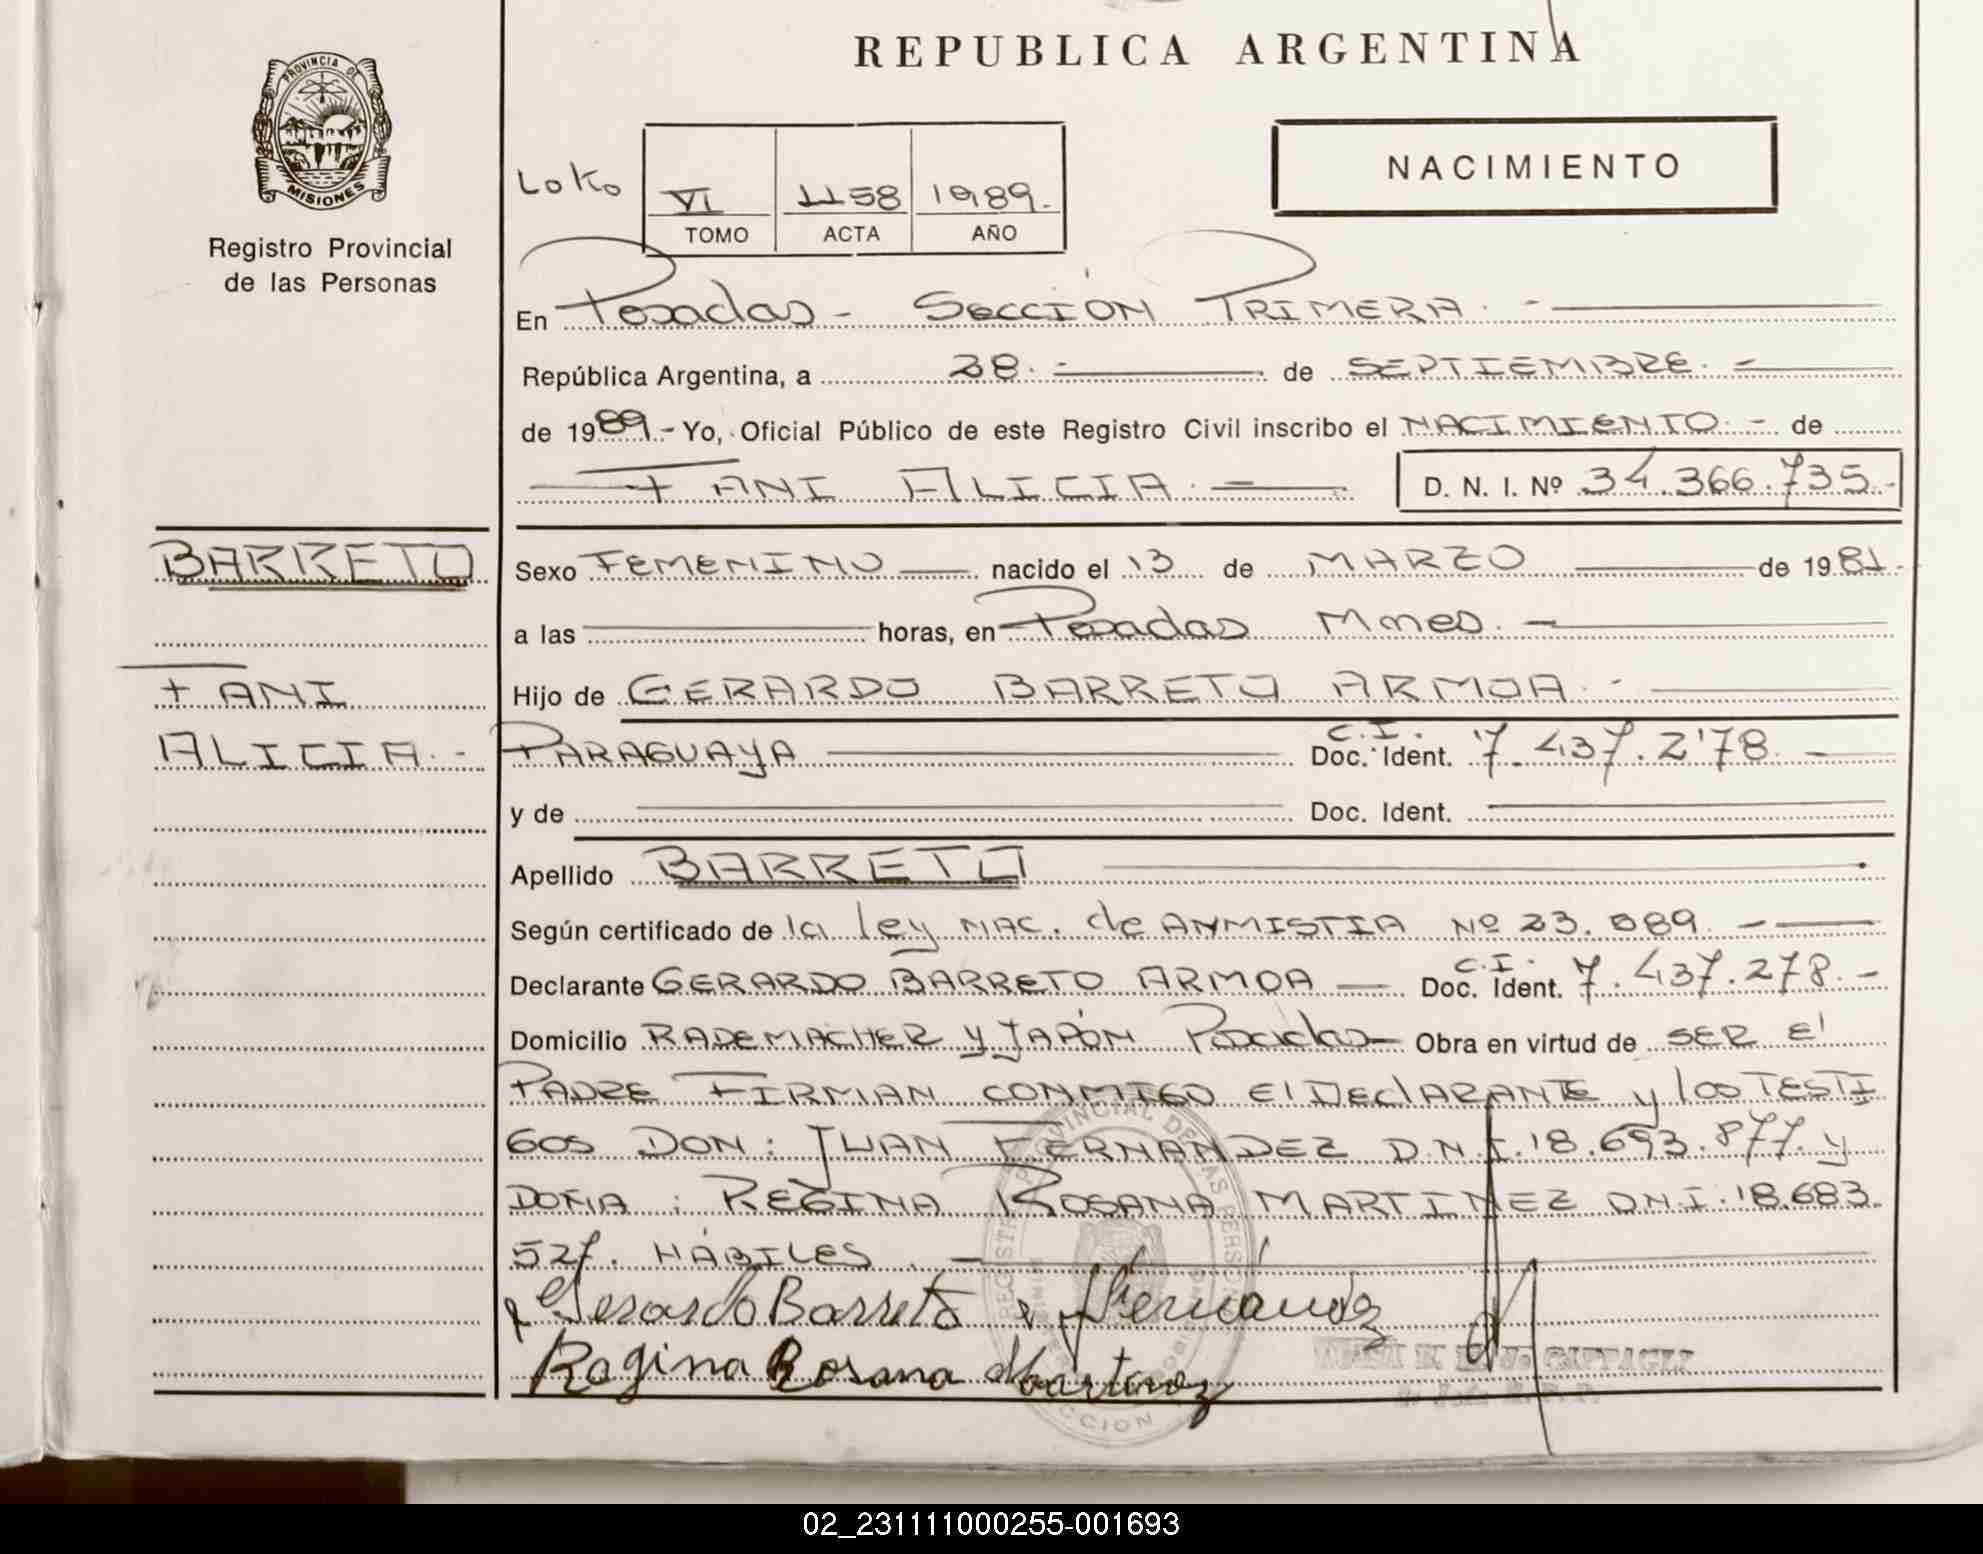 REPUBLICA ARGENTINA
PROVINCIA DE
MISIONES
Registro Provincial
de las Personas
Loko
VI 1158 1989.
TOMO ACTA AÑO
NACIMIENTO
En Posadas - SECCIÓN PRIMERA. -
República Argentina, a 28. - de SEPTIEMBRE. -
de 1989.- Yo, Oficial Público de este Registro Civil inscribo el NACIMIENTO. - de
FANI ALICIA. - D. N. I. Nº 34.366.735.-
BARRETO
FANI
ALICIA. -
Sexo FEMENINO nacido el 13 de MARZO de 1981.-
a las horas, en Posadas Mnes. -
Hijo de GERARDO BARRETO ARMOA. -
PARAGUAYA C.I. Doc. Ident. 7.437.278. -
y de Doc. Ident.
Apellido BARRETO
Según certificado de la ley NAC. de ANMISTIA Nº 23.089. -
Declarante GERARDO BARRETO ARMOA C.I. Doc. Ident. 7.437.278. -
Domicilio RADEMACHER y JAPÓN Posadas- Obra en virtud de SER El
PADRE FIRMAN CONMIGO El DEClARANTE y los TESTI
GOS DON: JUAN FERNANDEZ D.N.I. 18.693.877. y
DOÑA: REGINA ROSANA MARTINEZ D.N.I. 18.683.
527. HÁBILES. -
Gerardo Barreto Fernandez
Regina Rosana Martinez
REGISTRO PROVINCIAL DE LAS PERSONAS
02_231111000255-001693